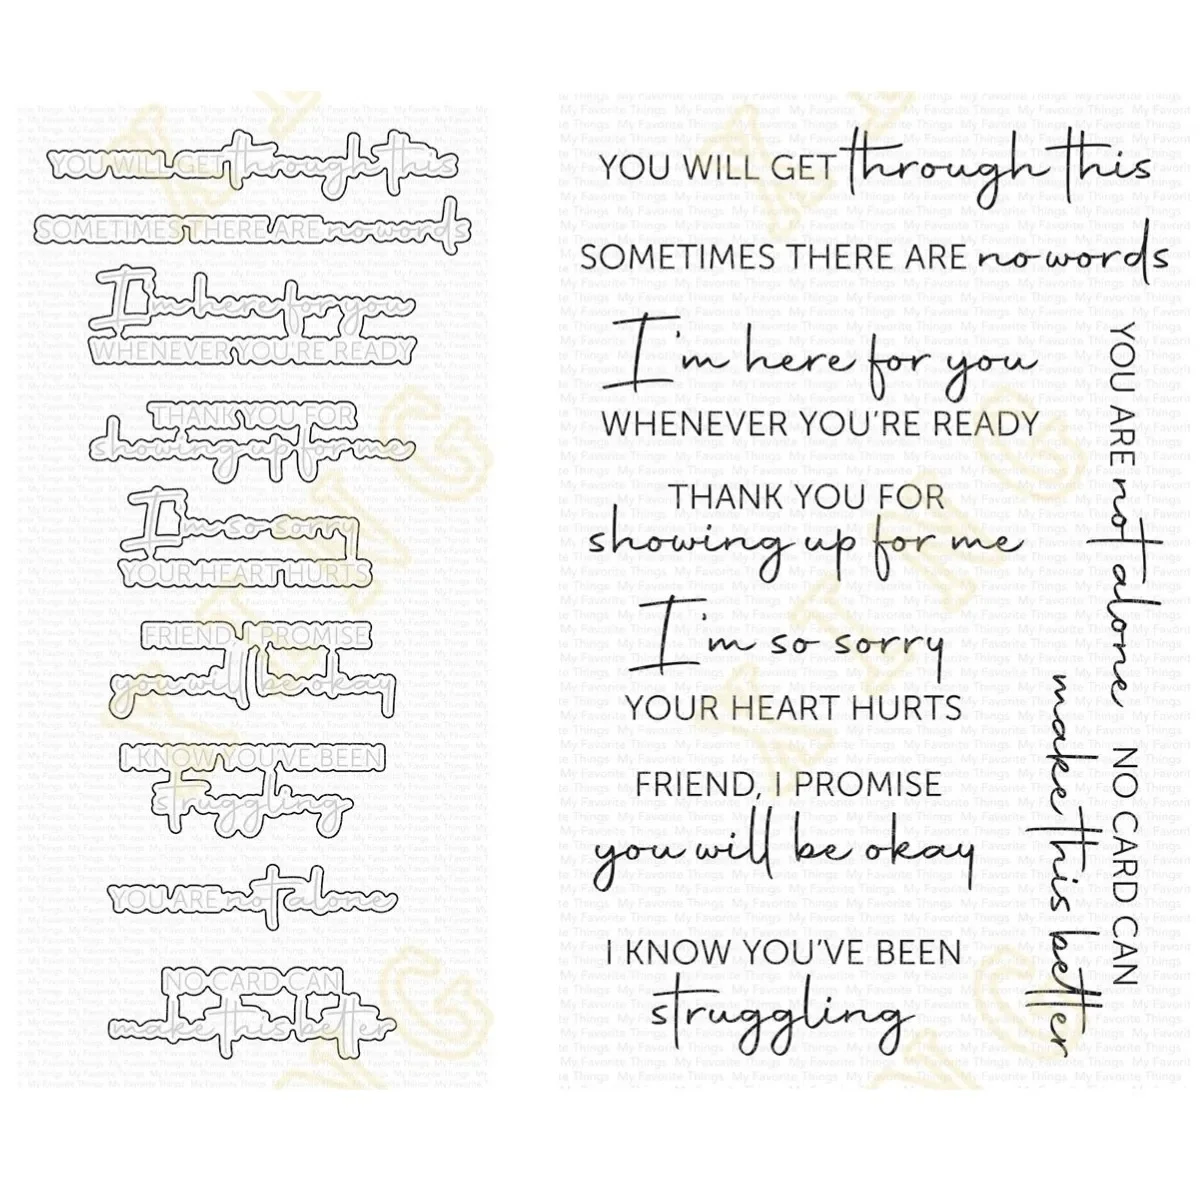 YOU WILL GET through this
SOMETIMES THERE ARE no words
I'm here for you
WHENEVER YOU'RE READY
THANK YOU FOR
showing up for me
I'm so sorry
YOUR HEART HURTS
FRIEND, I PROMISE
you will be okay
I KNOW YOU'VE BEEN
struggling
YOU ARE not alone
NO CARD CAN
make this better
YOU WILL GET through this
SOMETIMES THERE ARE no words
I'm here for you
WHENEVER YOU'RE READY
THANK YOU FOR
showing up for me
I'm so sorry
YOUR HEART HURTS
FRIEND, I PROMISE
you will be okay
I KNOW YOU'VE BEEN
struggling
YOU ARE not alone
NO CARD CAN
make this better
My Favorite Things